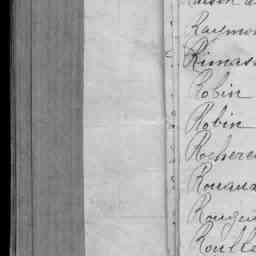 Raymon
Rimas
Robin
Robin
Rochere
Rouaux
Rougi
Roulle